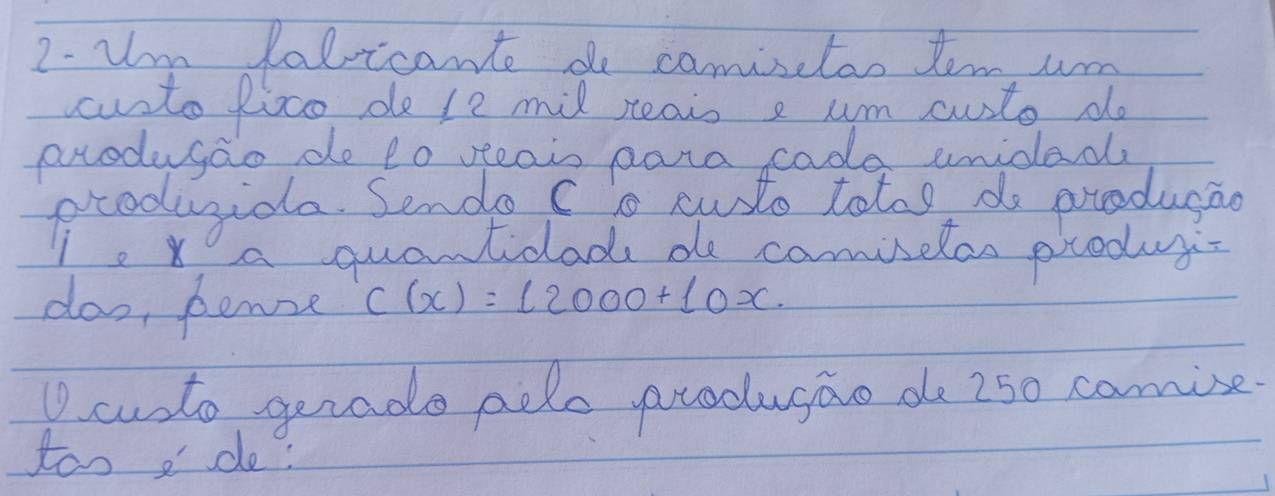 2- Um fabricante de camisetas tem um
custo fixo de 12 mil reais e um custo de
produção de 10 reais para cada unidade
produzida. Sendo C o custo total de produção
i e x a quantidade de camisetas produzi-
das, pense C(x)=12000+10x.
O custo gerado pela produção de 250 camise-
tas é de: